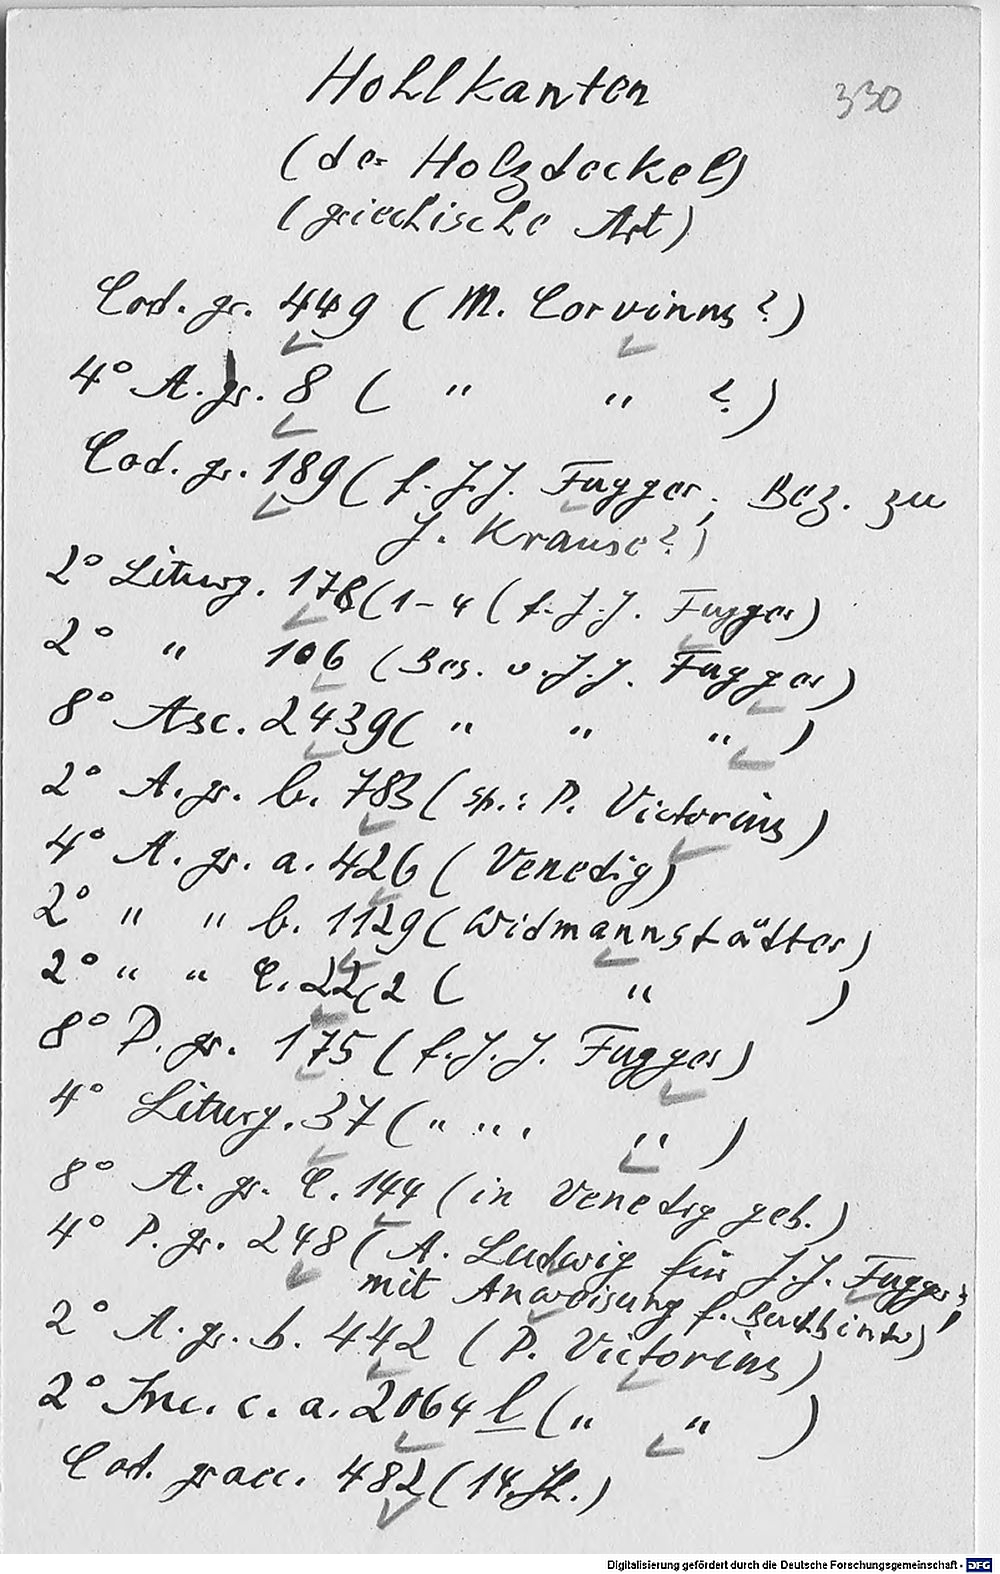 330
Hohlkanten
(der Holzdeckel)
(griechische Art)
Cod. gr. 449 (M. Corvinus?)
4° A. gr. 8 ( " " ?)
Cod. gr. 189 (f. J.J. Fugger; Bez. zu
J. Krause?)
2° Liturg. 178(1-4 (f. J.J. Fugger)
2° " 106 (Bes. v. J.J. Fugger)
8° Asc. 2439 ( " " " )
2° A. gr. b. 783 (sp.: P. Victorius)
4° A. gr. a. 426 (Venedig)
2° " " b. 1129 (Widmannstätter)
2° " " C. 22,2 ( " )
8° P. gr. 175 (f. J.J. Fugger)
4° Liturg. 37 ( " " " " )
8° A. gr. C. 144 (in Venedig geb.)
4° P. gr. 248 (A. Ludwig für J.J. Fugger;
mit Anweisung f. Buchbinder)!
2° A. gr. b. 442 (P. Victorius)
2° Inc. c. a. 2064 l ( " " )
Cod. graec. 482 (14. Jh.)
Digitalisierung gefördert durch die Deutsche Forschungsgemeinschaft - DFG